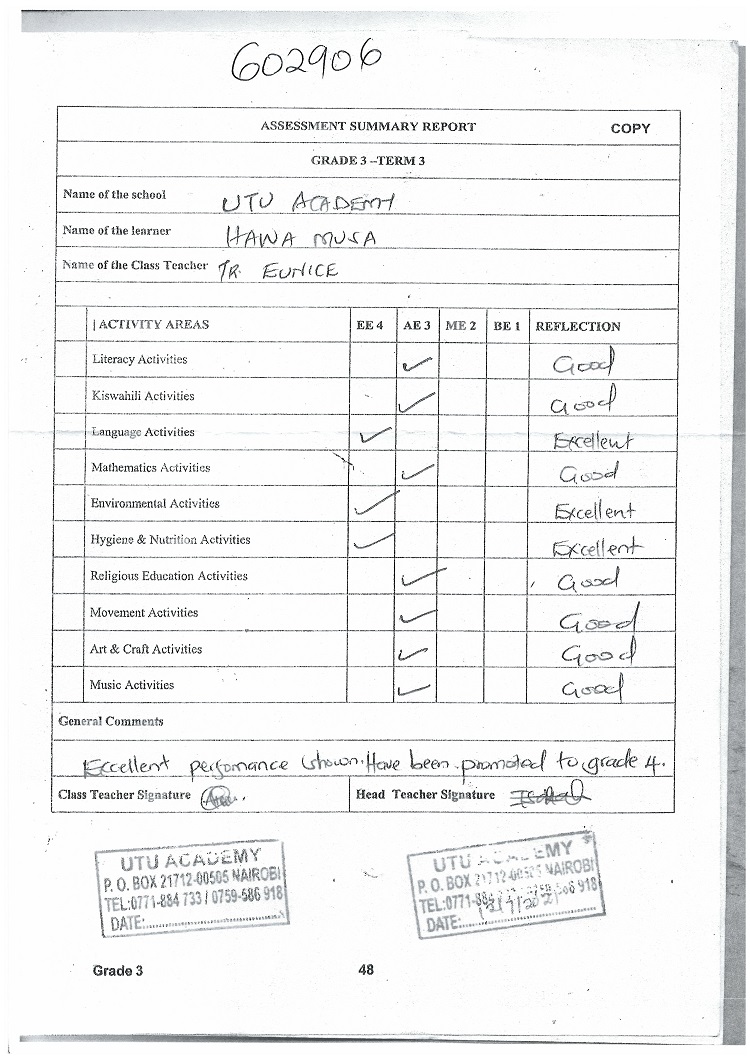 602906
ASSESSMENT SUMMARY REPORT COPY
GRADE 3 –TERM 3
Name of the school UTU ACADEMY
Name of the learner HAWA MUSA
Name of the Class Teacher TR. EUNICE
ACTIVITY AREAS EE 4 AE 3 ME 2 BE 1 REFLECTION
Literacy Activities ✓ Good
Kiswahili Activities ✓ Good
Language Activities ✓ Excellent
Mathematics Activities ✓ Good
Environmental Activities ✓ Excellent
Hygiene & Nutrition Activities ✓ Excellent
Religious Education Activities ✓ Good
Movement Activities ✓ Good
Art & Craft Activities ✓ Good
Music Activities ✓ Good
General Comments
Excellent perfomance shown. Have been promoted to grade 4.
Class Teacher Signature Head Teacher Signature
UTU ACADEMY
P. O. BOX 21712-00505 NAIROBI
TEL:0771-884 733 / 0759-586 918
DATE:
UTU EMY
P. O. BOX 21712-00505 NAIROBI
TEL:0771-884
DATE:
Grade 3 48